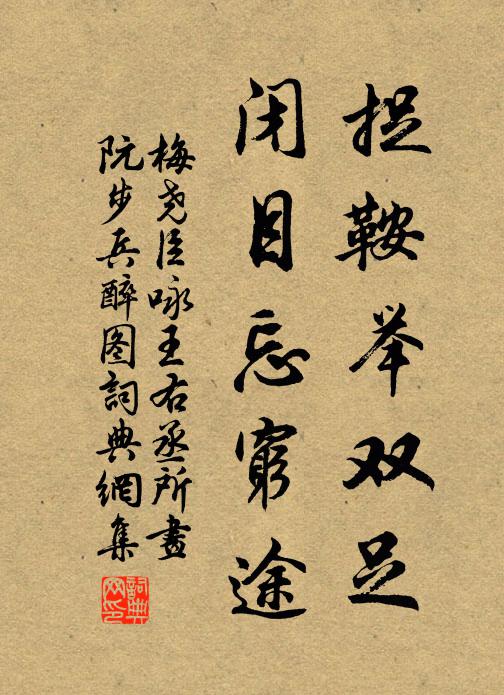 捉鞍举双足
闭目忘穷途
梅尧臣咏王右丞所画
阮步兵醉图词典網集
詞典网印